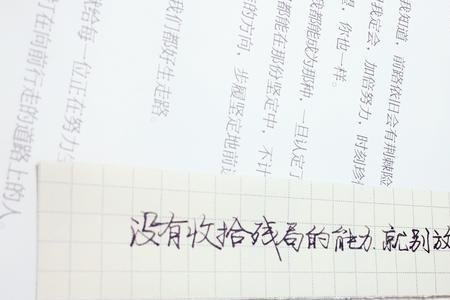 我知道，前路依旧会有荆棘险
我定会，加倍努力，时刻珍
，你也一样。
我都能成为那种，一旦认定了
都能在那份坚定中，不计
的方向，步履坚定地前
我们都好生走路。
给每一位正在努力
在向前行走的道路上的人。
没有收拾残局的能力.就别放